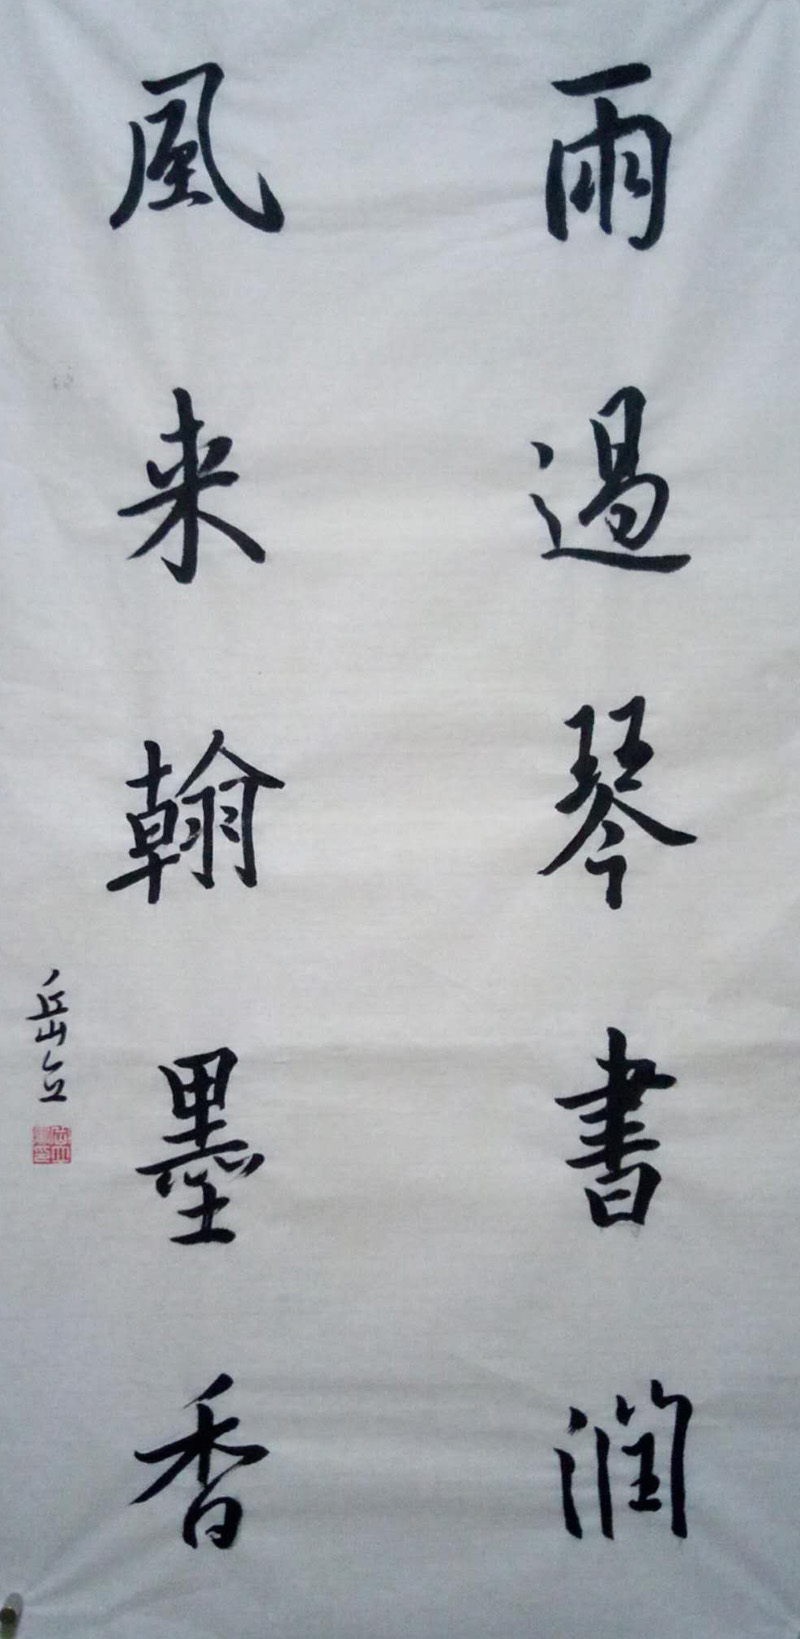 雨過琴書润
風来翰墨香
岳立